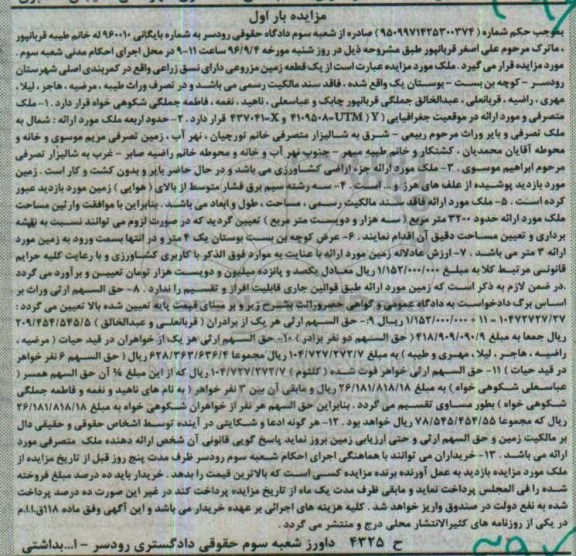 مزایده بار اول
بموجب حکم شماره (۹۵۰۹۹۷۱۴۲۵۳۰۰۳۷۴) صادره از شعبه سوم دادگاه حقوقی رودسر به شماره بایگانی ۹۶۰۰۱۰ له خانم طیبه قربانپور
، ماترک مرحوم علی اصغر قربانپور طبق مشروحه ذیل در روز شنبه مورخه ۹۶/۹/۴ ساعت ۱۱-۹ در محل اجرای احکام مدنی شعبه سوم .
مورد مزایده قرار می گیرد. ملک مورد مزایده عبارت است از یک قطعه زمین مزروعی دارای نسق زراعی واقع در کمربندی اصلی شهرستان
رودسر - کوچه بن بست - بوستان یک واقع شده . فاقد سند مالکیت رسمی می باشد و در تصرف وراث طیبه ، مرضیه ، هاجر ، لیلا ،
مهری ، راضیه ، قربانعلی ، عبدالخالق جملگی قربانپور چابک و عباسعلی ، ناهید ، نغمه ، فاطمه جملگی شکوهی خواه قرار دارد . ۱- ملک
متصرفی و مورد ارائه در موقعیت جغرافیایی (UTM Y-۴۱۰۹۵۰۸ و X-۴۳۷۰۴۱) قرار دارد. ۲- حدود اربعه ملک مورد ارائه : شمال به
ملک تصرفی و بایر وراث مرحوم ربیعی - شرق به شالیزار متصرفی خانم تورچیان ، نهر آب ، زمین تصرفی مریم موسوی و خانه و
محوطه آقایان محمدیان ، کشتکار و خانم طیبه سپهر - جنوب نهر آب و خانه و محوطه خانم راضیه صابر - غرب به شالیزار تصرفی
مرحوم ابراهیم موسوی . ۳- ملک مورد ارائه جزء اراضی کشاورزی می باشد و در حال حاضر بایر و بدون کشت و کار است . زمین
مورد بازدید پوشیده از علف های هرز و ... است . ۴- سه رشته سیم برق فشار متوسط از بالای (هوایی) زمین مورد بازدید عبور
کرده است . ۵- ملک مورد ارائه فاقد سند مالکیت رسمی ، مساحت ، طول و ابعاد می باشد . بنابراین با موافقت وارثین مساحت
ملک مورد ارائه حدود ۳۲۰۰ متر مربع (سه هزار و دویست متر مربع) تعیین گردید که در صورت لزوم می توانند نسبت به نقشه
برداری و تعیین مساحت دقیق آن اقدام نمایند . ۶- عرض کوچه بن بست بوستان یک ۴ متر و در انتها بسمت ورود به زمین مورد
ارائه ۳ متر می باشد . ۷- ارزش عادلانه زمین مورد ارائه با عنایت به موارد فوق الذکر با کاربری کشاورزی و با رعایت کلیه حرایم
قانونی مرتبط کلا به مبلغ ۱/۱۵۲/۰۰۰/۰۰۰ ریال معادل یکصد و پانزده میلیون و دویست هزار تومان تعیین و برآورد می گردد
.در ضمن لازم به ذکر است که زمین مورد ارائه طبق قوانین جاری قابلیت افراز و تقسیم را ندارد . ۸- حق السهم ارثی وراث بر
اساس برگ دادخواست به دادگاه عمومی و گواهی حصروراثت بشرح زیر و بر مبنای قیمت پایه تعیین شده بالا تعیین می گردد :
۱۰۴۷۲۷۲۷۲/۲۷ = ۱۱ ÷ ۱/۱۵۲/۰۰۰/۰۰۰ ریال ۹- حق السهم ارثی هر یک از برادران (قربانعلی و عبدالخالق) ۲۰۹/۴۵۴/۵۴۵/۵
ریال جمعا به مبلغ ۴۱۸/۹۰۹/۰۹۰/۹ (حق السهم دو نفر برادر) ۱۰- حق السهم ارثی هر یک از خواهران در قید حیات (مرضیه ،
راضیه ، هاجر ، لیلا ، مهری و طیبه) به مبلغ ۱۰۴/۷۲۷/۲۷۲/۷ ریال مجموعا ۶۲۸/۳۶۳/۶۳۶/۴ ریال (حق السهم ۶ نفر خواهر
در قید حیات) ۱۱- حق السهم ارثی خواهر فوت شده (کلثوم) ۱۰۴/۷۲۷/۲۷۲/۷ ریال که از این مبلغ ¼ آن حق السهم همسر (
عباسعلی شکوهی خواه) به مبلغ ۲۶/۱۸۱/۸۱۸/۱۸ ریال و مابقی آن بین ۳ نفر خواهر (به نام های ناهید و نغمه و فاطمه جملگی
شکوهی خواه) بطور مساوی تقسیم می گردد . بنابراین حق السهم هر نفر از خواهران شکوهی خواه به مبلغ ۲۶/۱۸۱/۸۱۸/۱۸
ریال که مجموعا ۷۸/۵۴۵/۴۵۴/۵۵ ریال خواهد بود . ۱۲- هر گونه ادعا و شکایتی در آینده توسط اشخاص حقوقی و حقیقی دال
بر مالکیت زمین و حق السهم ارثی و حتی ارزیابی زمین بروز نماید پاسخ گویی قانونی آن شخص ارائه دهنده ملک متصرفی مورد
ارائه می باشد . ۱۳- خریداران می توانند با هماهنگی اجرای احکام شعبه سوم رودسر ظرف مدت پنج روز قبل از تاریخ مزایده از
ملک مورد مزایده بازدید به عمل آورنده برنده مزایده کسی است که بالاترین قیمت را بدهد. خریدار باید ده درصد مبلغ فروخته
شده را فی المجلس پرداخت نماید و مابقی ظرف مدت یک ماه از تاریخ مزایده پرداخت کند در غیر این صورت ده درصد پرداخت
شده به نفع دولت در صندوق واریز خواهد شد . کلیه هزینه های اجرائی بر عهده خریدار می باشد و این آگهی وفق ماده ۱۱۸ق.ا.ا.م
در یکی از روزنامه های کثیرالانتشار محلی درج و منتشر می گردد .
ح ۴۳۲۵ داورز شعبه سوم حقوقی دادگستری رودسر - ا...بداشتی